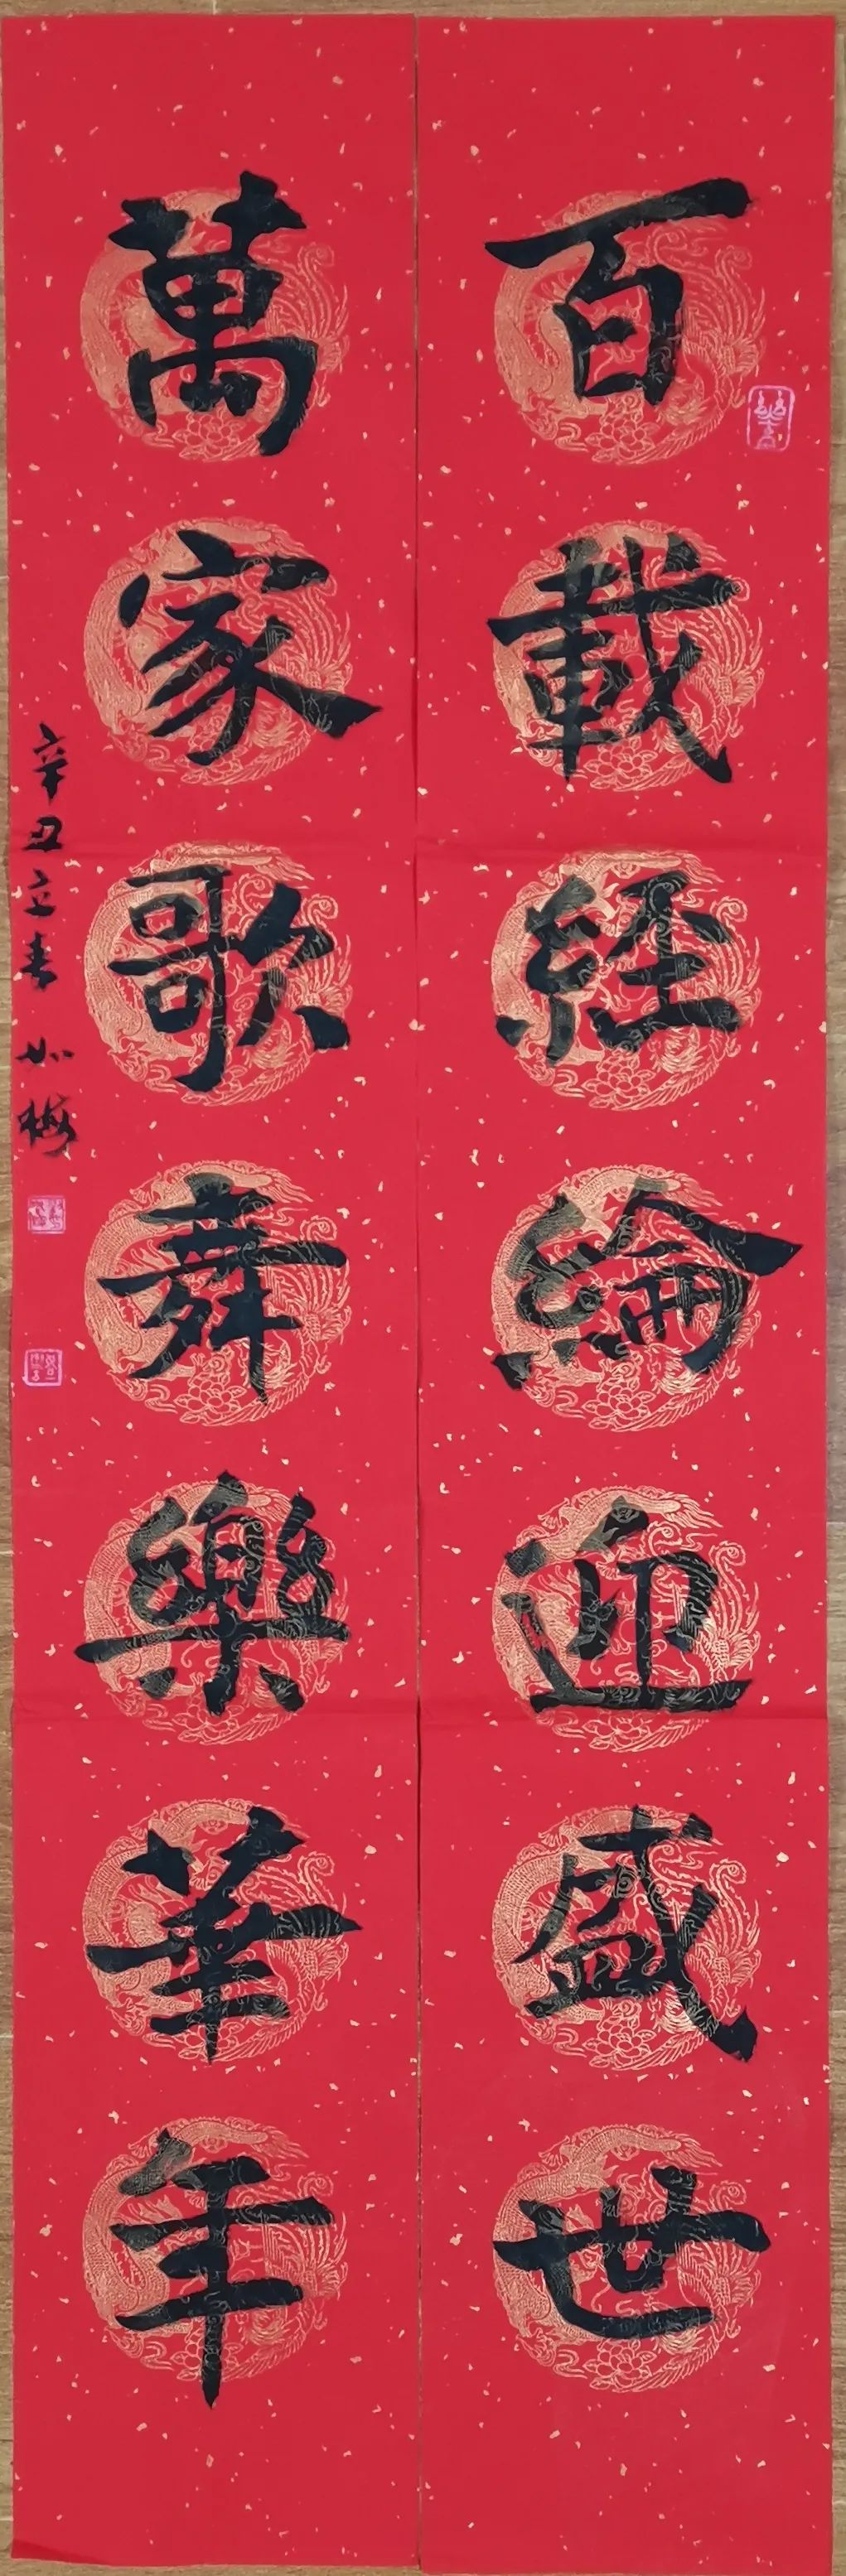 百載經綸迎盛世
萬家歌舞樂華年
辛丑立春 如梅